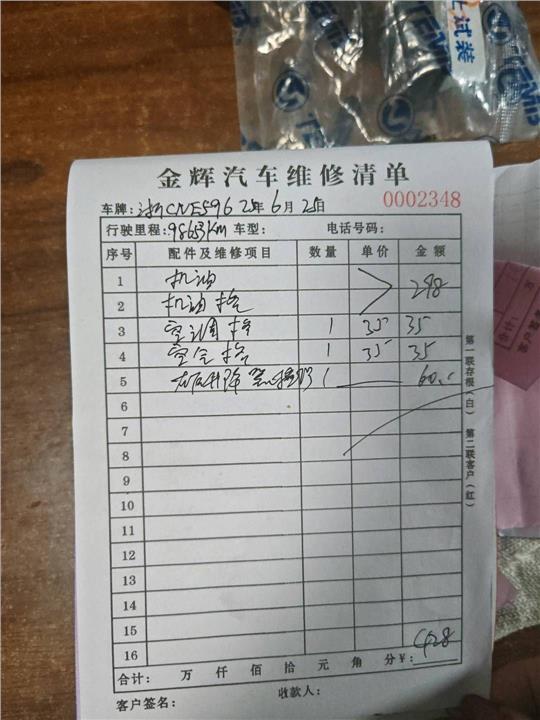 上试装
TEMB
金辉汽车维修清单
车牌：浙CNE596 25年6月25日 0002348
行驶里程：98653Km 车型： 电话号码：
序号 配件及维修项目 数量 单价 金额
1 机油 298
2 机油格
3 空调格 1 35 35
4 空气格 1 35 35
5 1 60.-
6
7
8
9
10
11
12
13
14
15
16 428
合计： 万 仟 佰 拾 元 角 分 ¥：
客户签名： 收款人：
第一联存根（白） 第二联客户（红）
合计：